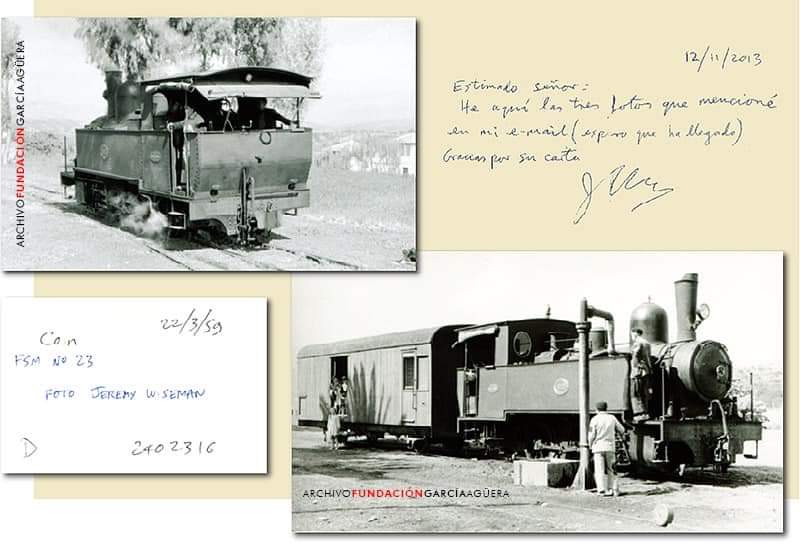 ARCHIVOFUNDACIÓNGARCÍAAGÜERA
12/11/2013
Estimado señor:
He aquí las tres fotos que mencioné
en mi e-mail (espero que ha llegado)
Gracias por su carta
22/3/59
Coin
FSM No 23
FOTO JEREMY WISEMAN
D
2402316
ARCHIVOFUNDACIÓNGARCÍAAGÜERA